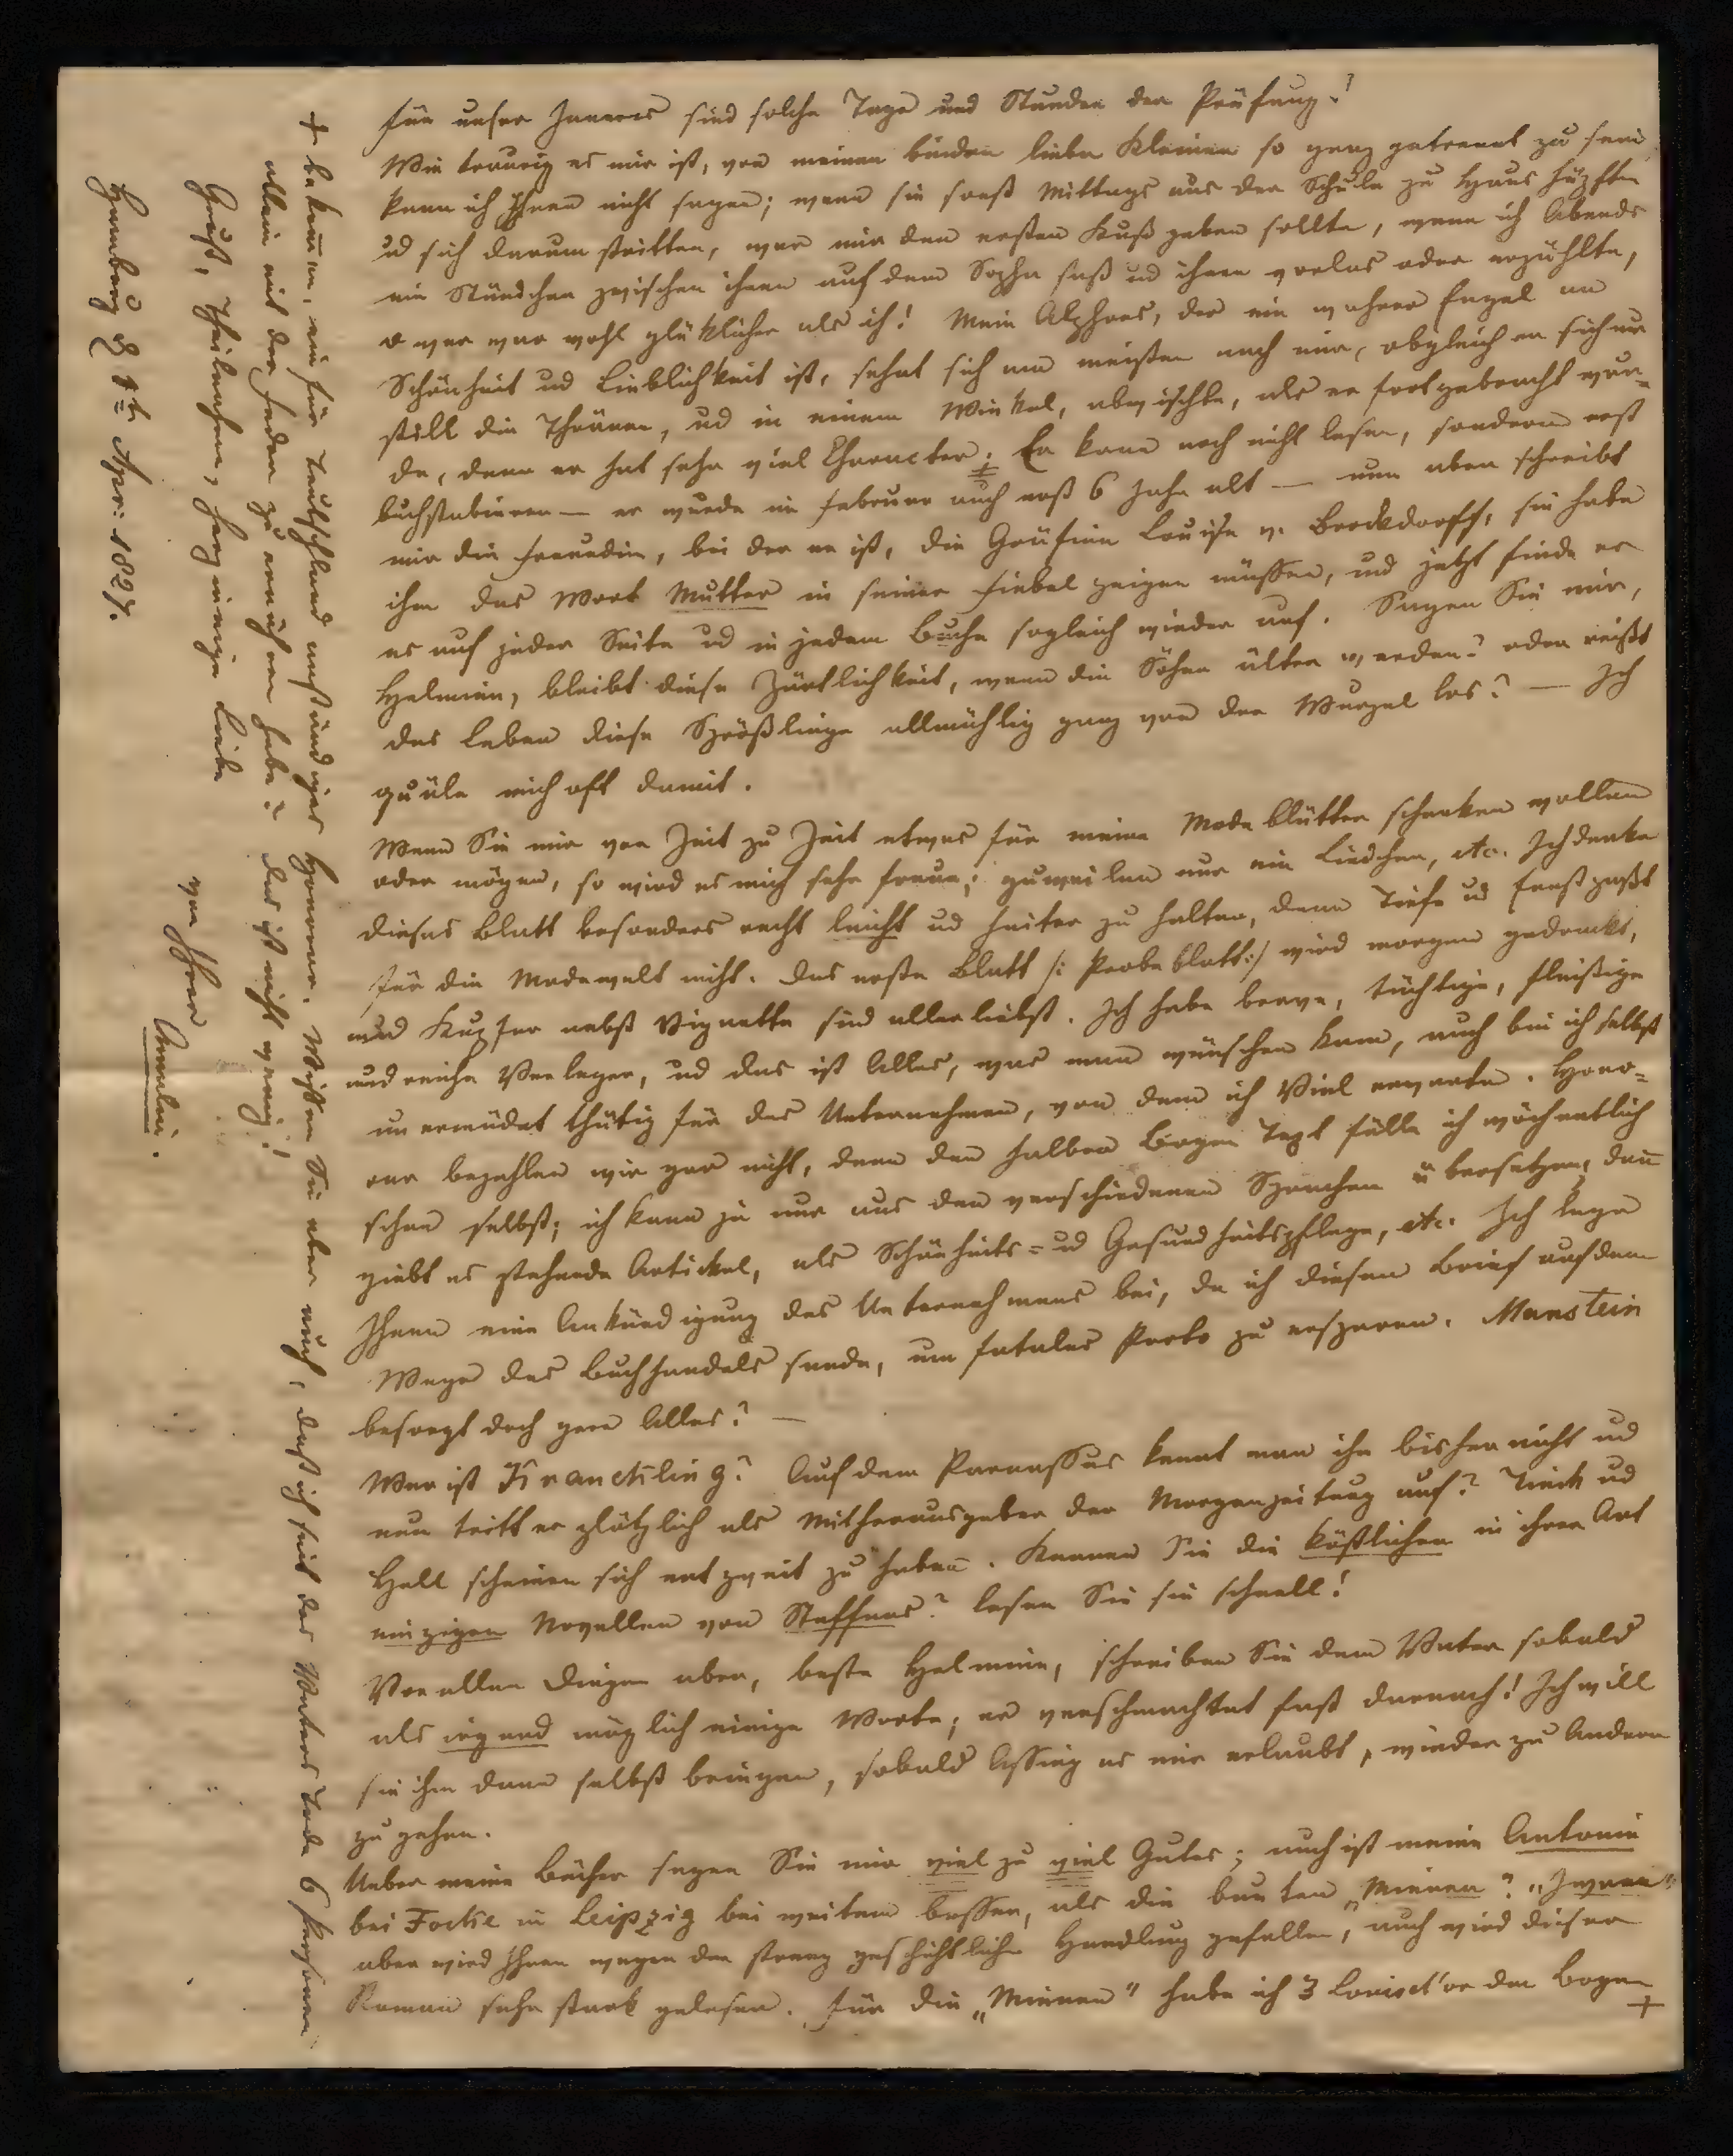 für unser Inneres sind solche Tage und Stunden der Prüfung!
Wie traurig es mir ist, von meinen beiden lieben Kleinen so ganz getrennt zu sein
kann ich Ihnen nicht sagen; wenn sie sonst Mittags aus der Schule zu Haus hüpften
ud sich darum stritten, wer mir den ersten Kuß geben sollte, wenn ich Abends
ein Stündchen zwischen ihnen auf dem Sopha saß ud ihnen vorlas oder erzählte,
o wer war wohl glüklicher als ich! Mein Alphons, der ein wahrer Engel an
Schönheit ud Lieblichkeit ist, sehnt sich am meisten nach mir, obgleich er sich nur
still die Thränen, ud in einem Winkel, abwischte, als er fortgebracht wur-
de, denn er hat sehr viel Character. Er kann noch nicht lesen, sondern erst
buchstabieren — er wurde im Februar auch erst 6 Jahr alt — nun aber schreibt
mir die Freundin, bei der er ist, die Gräfinn Louise v. Brockdorff, sie habe
ihm das Wort Mutter in seiner Fiebel zeigen müssen, und jetzt finde er
es auf jeder Seite ud in jedem Buche sogleich wieder auf. Sagen Sie mir,
Helmine, bleibt diese Zärtlichkeit, wenn die Söhne älter werden? oder reißt
das Leben diese Sprößlinge allmählig ganz von der Wurzel los? — Ich
quäle mich oft damit.
Wenn Sie mir von Zeit zu Zeit etwas für meine Modeblätter schenken wollen
oder mögen, so wird es mich sehr freun; zuweilen nur ein Liedchen, etc. Ich denke
dieses Blatt besonders recht leicht ud heiter zu halten, denn Tiefe ud Ernst paßt
für die Modewelt nicht. Das erste Blatt /: Probeblatt :/ wird morgen gedruckt,
und Kupfer nebst Vignette sind allerliebst. Ich habe brave, tüchtige, fleißige
und reiche Verleger, ud das ist Alles, was man wünschen kann, auch bin ich selbst
unermüdet thätig für das Unternehmen, von dem ich Viel erwarte. Hono-
rar bezahlen wir gar nicht, denn den halben Bogen Text fülle ich wöchentlich
schon selbst; ich kann ja nur aus den verschiedenen Sprachen übersetzen, dañ
giebt es stehende Artickel, als Schönheits- ud Gesundheitspflege, etc. Ich lege
Ihnen eine Ankündigung des Unternehmens bei, da ich diesen Brief auf dem
Wege des Buchhandels sende, um fatales Porto zu ersparen. Manstein
besorgt doch gern Alles? —
Wer ist Kranckling? Auf dem Parnassus kennt man ihn bisher nicht ud
nun tritt er plötzlich als Mitherausgeber der Morgenzeitung auf? Tieck ud
Hell scheinen sich entzweit zu haben. Kennen Sie die köstlichen in ihrer Art
einzigen Novellen von Steffens? lesen Sie sie schnell!
Vor allen Dingen aber, beste Helmine, schreiben Sie dem Vater sobald
als irgend möglich einige Worte; er verschmachtet fast darnach! Ich will
sie ihm dann selbst bringen, sobald Assing es mir erlaubt, wieder zu Andern
zu gehen.
Ueber meine Bücher sagen Sie mir viel zu viel Gutes; auch ist meine Antonie
bei Focke in Leipzig bei weitem besser, als die bunten „Mienen"?
aber wird Ihnen wegen der streng geschichtlichen Handlung gefallen, auch wird dieser
Roman sehr stark gelesen. Für die „Mienen" habe ich 3 Louisd'or den Bogen +
+ bekom̄en, ein für Teutschland anständiges Honorar. Wissen Sie aber auch, daß ich seit des Vaters Tode 6 Personen
allein mit der Feder zu ernähren habe? Das ist nicht wenig!
Gruß, Theilnahme, herzinnige Liebe
von Ihrer
Amalie.
Hamburg d 1t Apr: 1827.